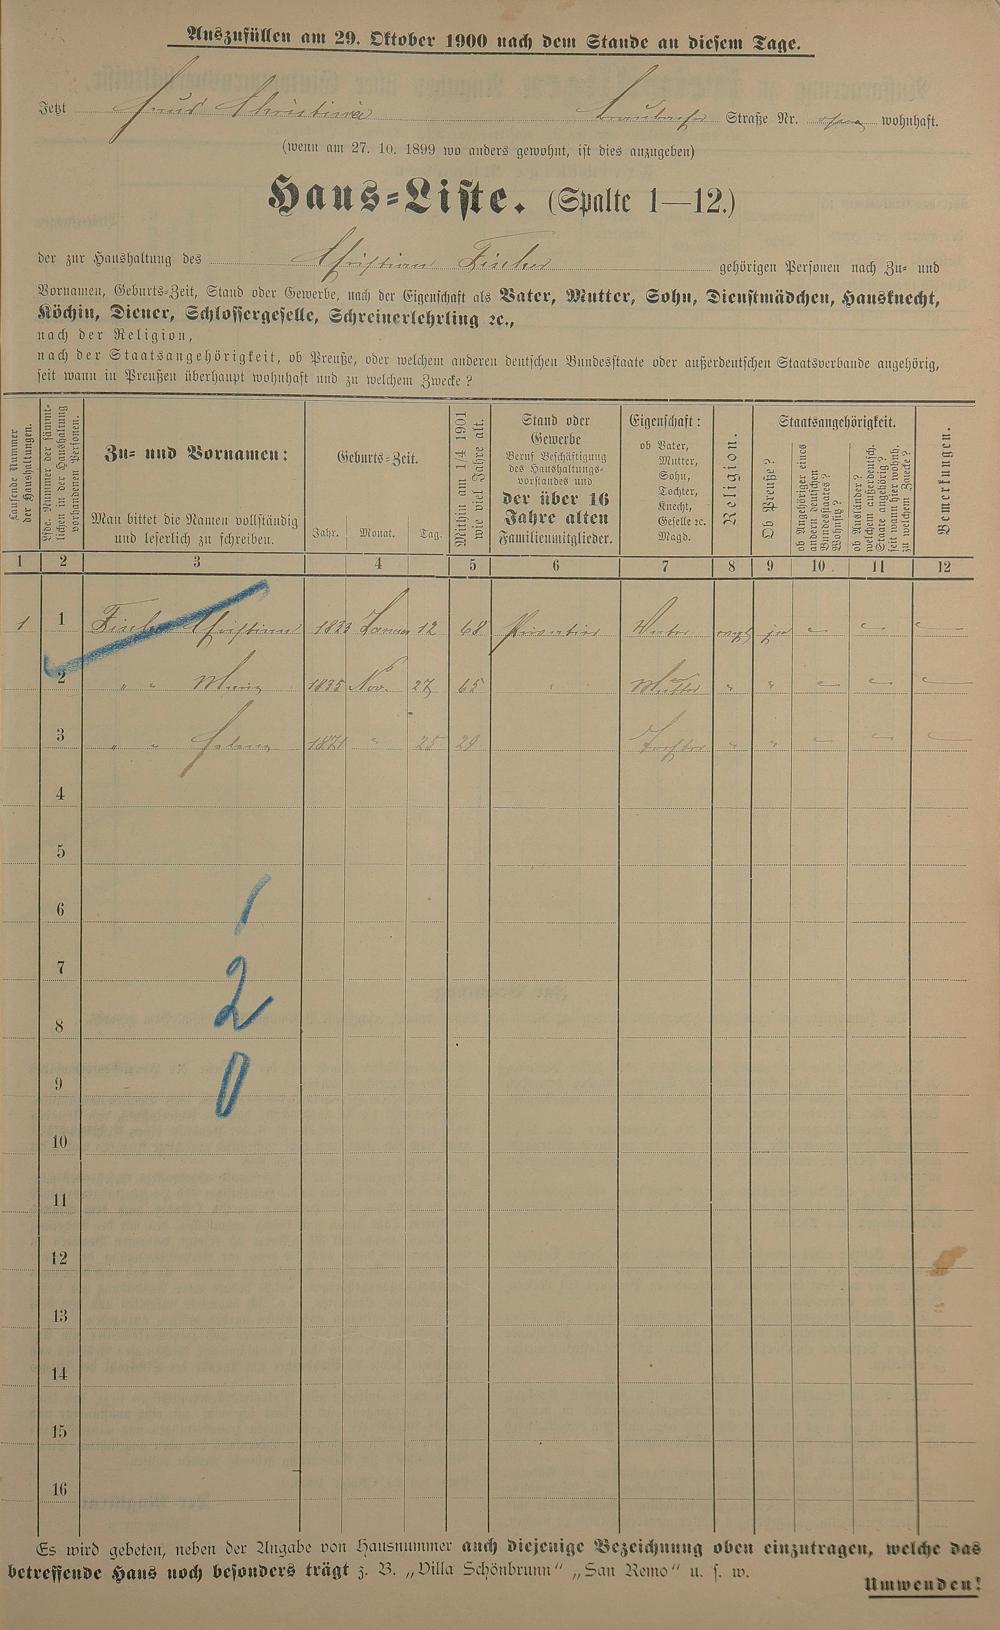 Auszufüllen am 29. Oktober 1900 nach dem Stande an diesem Tage.
Jetzt Haus Christina Straße Nr. wohnhaft.
(wenn am 27. 10. 1899 wo anders gewohnt, ist dies anzugeben)
Haus=Liste. (Spalte 1—12.)
der zur Haushaltung des Christian Fischer gehörigen Personen nach Zu= und
Vornamen, Geburts=Zeit, Stand oder Gewerbe, nach der Eigenschaft als Vater, Mutter, Sohn, Dienstmädchen, Hausknecht,
Köchin, Diener, Schlossergeselle, Schreinerlehrling ꝛc.,
nach der Religion,
nach der Staatsangehörigkeit, ob Preuße, oder welchem anderen deutschen Bundesstaate oder außerdeutschen Staatsverbande angehörig,
seit wann in Preußen überhaupt wohnhaft und zu welchem Zwecke?
Laufende Nummer
der Haushaltungen.
Lfde. Nummer der sämmt=
lichen in der Haushaltung
vorhandenen Personen.
Zu= und Vornamen:
Man bittet die Namen vollständig
und leserlich zu schreiben.
Geburts=Zeit.
Jahr. Monat. Tag.
Mithin am 1/4 1901
wie viel Jahre alt.
Stand oder
Gewerbe
Beruf Beschäftigung
des Haushaltungs=
vorstandes und
der über 16
Jahre alten
Familienmitglieder.
Eigenschaft:
ob Vater,
Mutter,
Sohn,
Tochter,
Knecht,
Geselle ꝛc.
Magd.
Religion.
Staatsangehörigkeit.
Ob Preuße?
ob Angehöriger eines
andern deutschen
Bundesstaates?
Wohnsitz?
ob Ausländer?
welchem außerdeutsch.
Staate angehörig?
seit wann hier wohnh.
zu welchem Zwecke?
Bemerkungen.
1 2 3 4 5 6 7 8 9 10. 11 12
1 1 Fischer Christian 1833 Januar 12 68 Privatier Vater evgl ja
2 " " Maria 1835 Nov. 27 65 " Mutter " "
3 " " Helena 1871 " 25 29 Tochter " "
4
5
6
7
8
9
10
11
12
13
14
15
16
1
2
0
Es wird gebeten, neben der Angabe von Hausnummer auch diejenige Bezeichnung oben einzutragen, welche das
betreffende Haus noch besonders trägt z. B. „Villa Schönbrunn" „San Remo" u. s. w.
Umwenden!